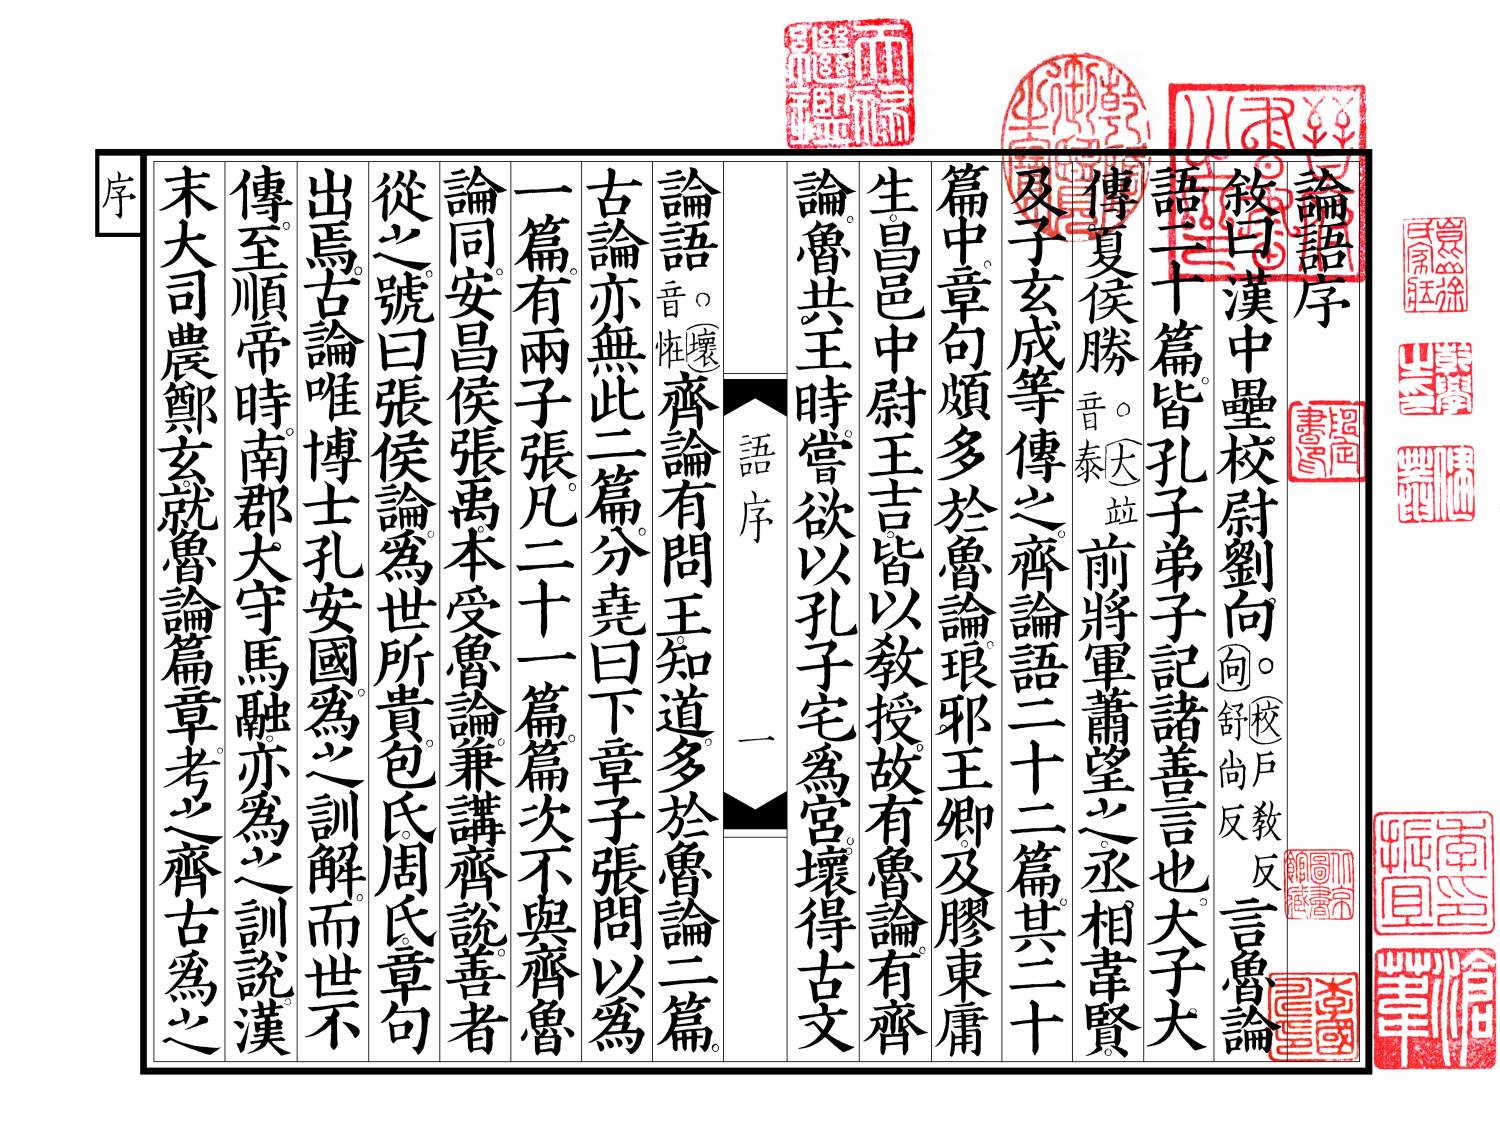 論語序
敘曰漢中壘校尉劉向。校戶敎反向舒尙反言魯論
語二十篇。皆孔子弟子記諸善言也。大子大
傳夏侯勝。大竝音泰前將軍蕭望之。丞相韋賢。
及子玄成等傳之。齊論語二十二篇。其二十
篇中。章句頗多於魯論。琅邪王卿。及膠東庸
生。昌邑中尉王吉。皆以敎授。故有魯論。有齊
論。魯共王時。嘗欲以孔子宅爲宮。壞得古文
語序
一
論語。壞音怪齊論有問王。知道。多於魯論二篇。
古論亦無此二篇。分堯曰下章子張問以爲
一篇。有兩子張。凡二十一篇。篇次不與齊魯
論同。安昌侯張禹。本受魯論。兼講齊說。善者
從之。號曰張侯論。爲世所貴。包氏。周氏。章句
出焉。古論唯博士孔安國。爲之訓解。而世不
傳。至順帝時。南郡大守馬融。亦爲之訓說。漢
末大司農鄭玄。就魯論篇章。考之齊古爲之
序
天祿繼鑑
乾隆御覽之寶
李國